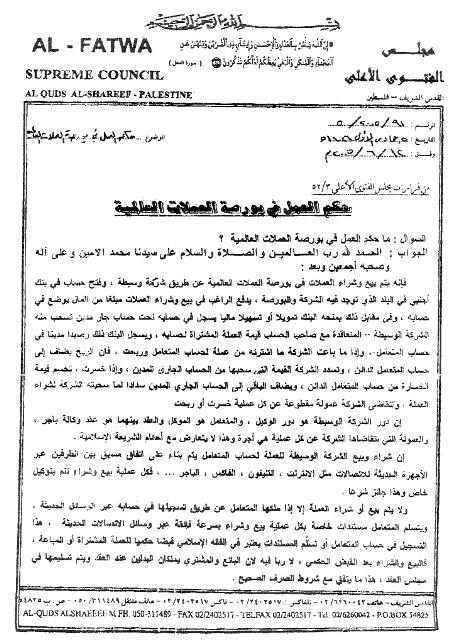 بسم الله الرحمن الرحيم
AL - FATWA
SUPREME COUNCIL
AL QUDS AL-SHAREEF - PALESTINE
إن الله يأمر بالعدل والإحسان وإيتاء ذي القربى وينهى عن
الفحشاء والمنكر والبغي يعظكم لعلكم تذكرون
(سورة النحل)
مجلس
الفتوى الأعلى
القدس الشريف - فلسطين
الرقم :
التاريخ :
وفق :
الموضوع : حكم العمل في بورصة العملات العالمية
من قرارات مجلس الفتوى الأعلى ٥٢/٣
حكم العمل في بورصة العملات العالمية
السؤال : ما حكم العمل في بورصة العملات العالمية ؟
الجواب : الحمد لله رب العالمين والصلاة والسلام على سيدنا محمد الامين وعلى آله
وصحبه أجمعين وبعد :
فإنه يتم بيع وشراء العملات في بورصة العملات العالمية عن طريق شركة وسيطة ، وفتح حساب في بنك
أجنبي في البلد الذي توجد فيه الشركة والبورصة ، يدفع الراغب في بيع وشراء العملات مبلغا من المال يوضع في
حسابه ، وفي مقابل ذلك يمنحه البنك تمويلا أو تسهيلا ماليا يسجل في حسابه تحت حساب جار مدين تسحب منه
الشركة الوسيطة – المتعاقدة مع صاحب الحساب قيمة العملة المشتراة لحسابه ، ويسجل البنك ذلك رصيدا مدينا في
حساب المتعامل.. وإذا ما باعت الشركة ما اشترته من عملة لحساب المتعامل وربحت ، فان الربح يضاف إلى
حساب المتعامل الدائن ، وتسدد الشركة القيمة التي سحبها من الحساب الجاري المدين ، وإذا خسرت ، تخصم قيمة
الخسارة من حساب المتعامل الدائن ، ويضاف الباقي إلى الحساب الجاري المدين سدادا لما سحبته الشركة لشراء
العملة ، وتتقاضى الشركة عمولة مقطوعة عن كل عملية خسرت أو ربحت
إن دور الشركة الوسيطة هو دور الوكيل ، والمتعامل هو الموكل والعقد بينهما هو عقد وكالة بأجر ،
والعمولة التي تتقاضاها الشركة عن كل عملية هي أجرة وهذا لا يتعارض مع أحكام الشريعة الإسلامية .
إن شراء وبيع الشركة الوسيطة للعملة لحساب المتعامل يتم بناء على اتفاق مسبق بين الطرفين عبر
الأجهزة الحديثة للاتصالات مثل الانترنت ، التليفون ، الفاكس ، البيجر ... ، فكل عملية بيع وشراء تتم بتوكيل
خاص وهذا جائز شرعا .
ولا يتم بيع أو شراء العملة إلا إذا ملكها المتعامل عن طريق تسجيلها في حسابه عبر الوسائل الحديثة ،
ويتسلم المتعامل مستندات خاصة بكل عملية بيع وشراء بسرعة فائقة عبر وسائل الاتصالات الحديثة ، هذا
التسجيل في حساب المتعامل أو تسلم المستندات يعتبر في الفقه الإسلامي قبضا حكميا للعملة المشتراة أو المباعة ،
فالبيع والشراء بعد القبض الحكمي ، لا ربا فيه لان البائع والمشتري يملكان البدلين عند العقد ويتم تسليمها في
مجلس العقد ، هذا ما يتفق مع شروط الصرف الصحيح .
القدس الشريف - هاتف ٠٢/٦٢٦٠٠٤٢ - تلفاكس ٠٢/٢٤٠٢٥١٧ - فاكس ٠٢/٢٤٠٢٥١٧ - هاتف متنقل ٠٥٠/٣١١٤٨٩ - ص.ب ٥٤٨٢٥
AL-QUDS ALSHAREEF M.PH. 050-311489 - FAX 02/2402517 - TELFAX 02/2402517 - TEL. 02/6260042 - P.O.BOX 54825